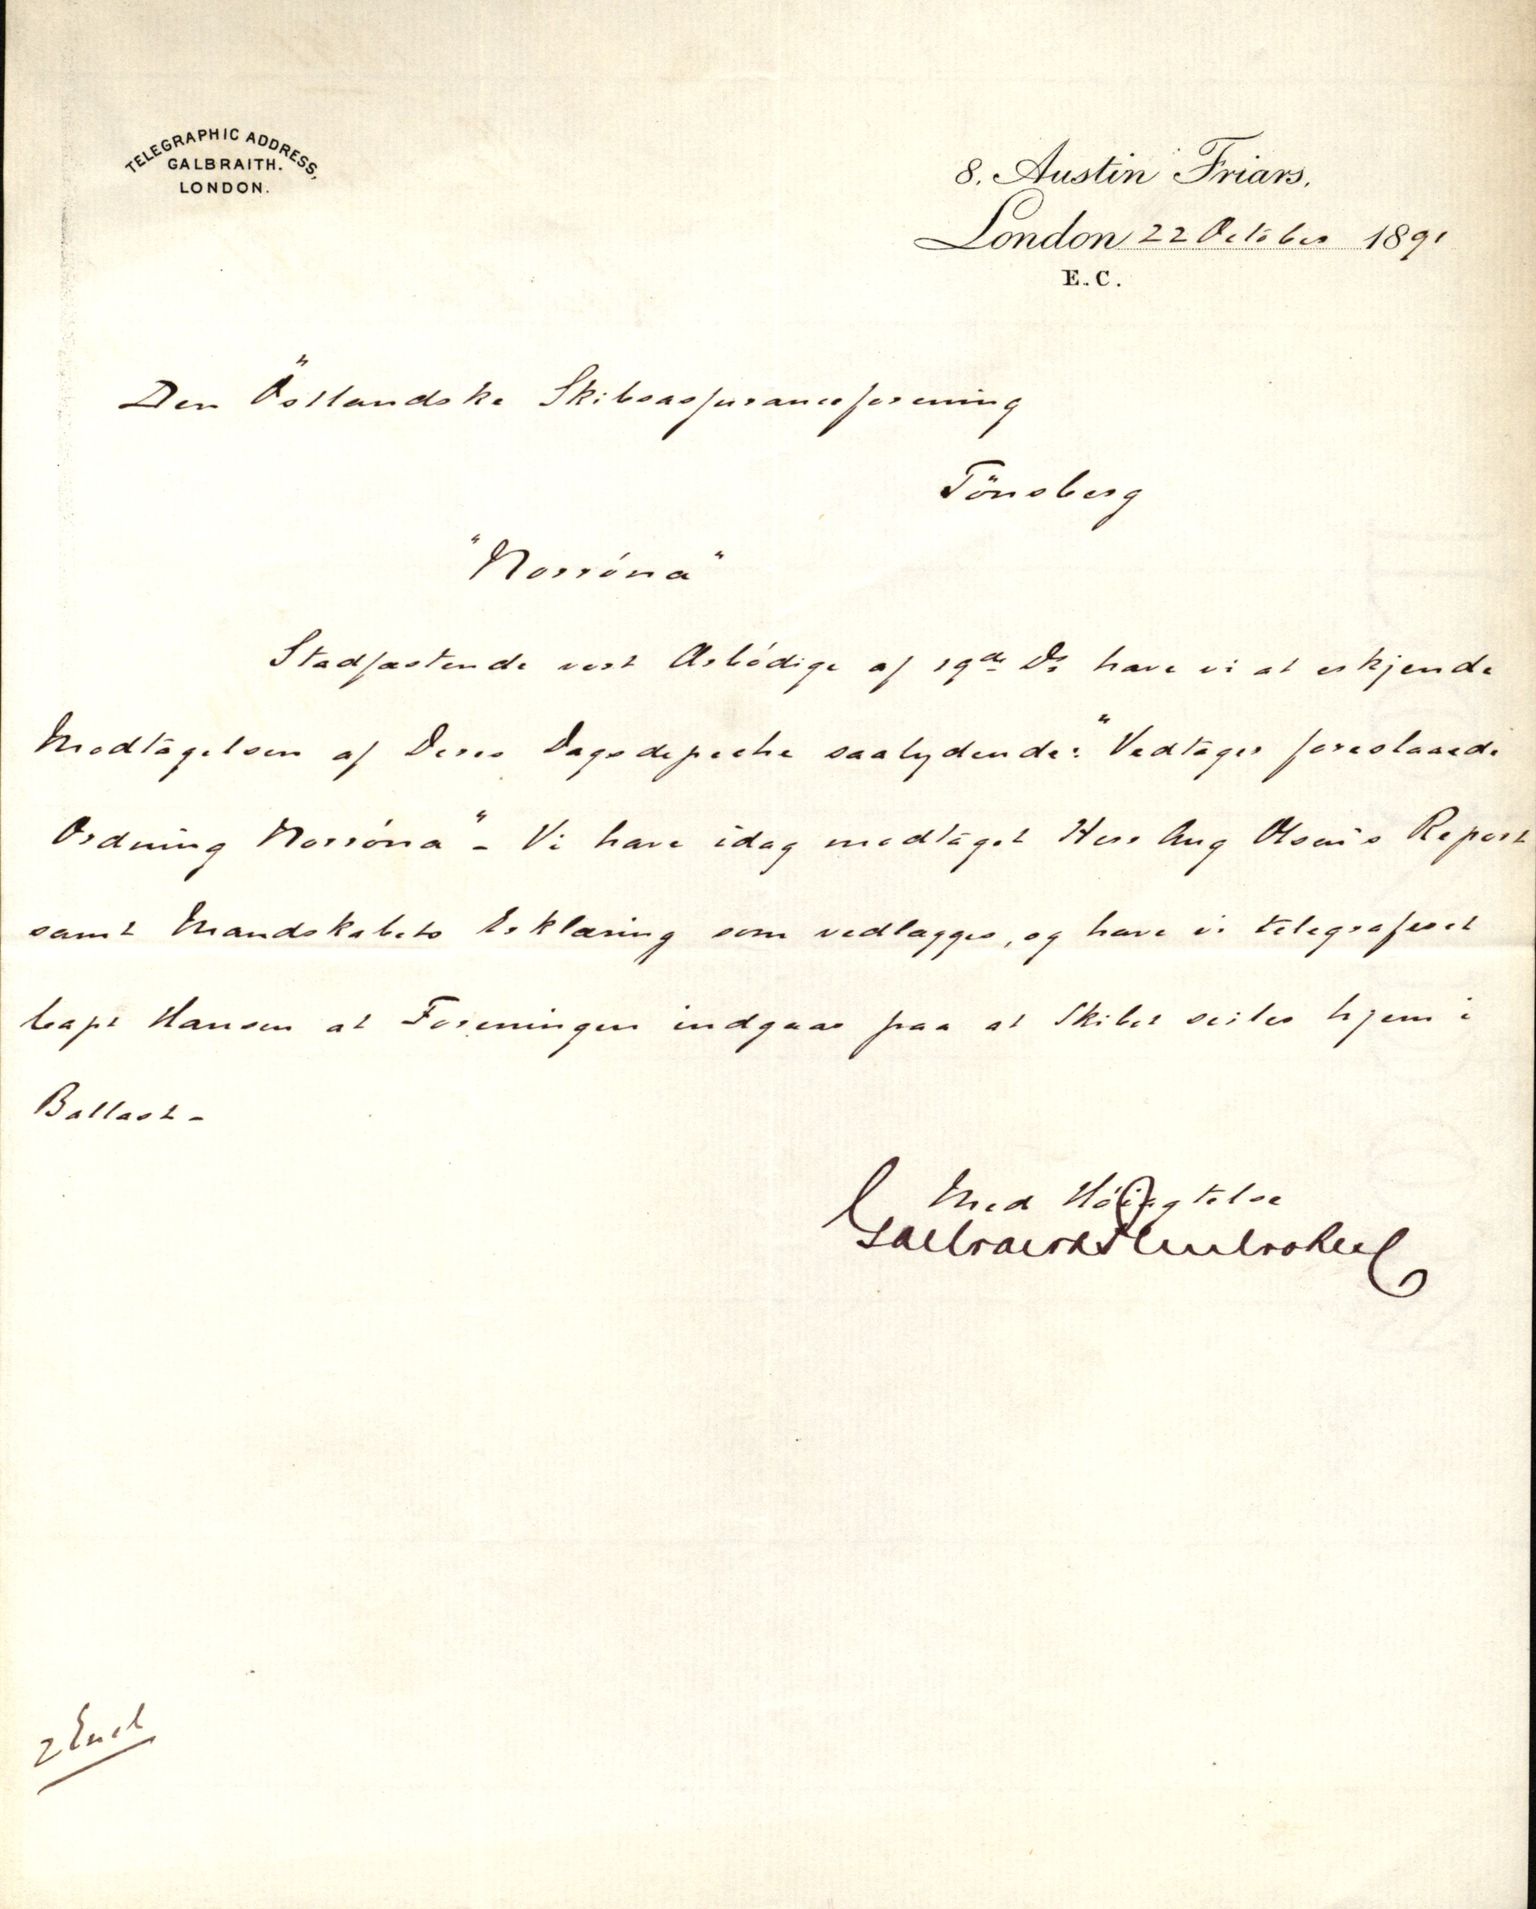 TELEGRAPHIC ADDRESS,
GALBRAITH.
LONDON.
8. Austin Friars,
London 22 October 1891
E.C.
Den Östlandske Skibsassuranceforening
Tönsberg
"Norróna"
Stadfæstende vort Ærbödige af 19de Ds have vi at erkjende
Modtagelsen af Deres Dagsdepeche saalydende: "Vedtager foreslaaede
Ordning Norróna" - Vi have idag modtaget Herr Aug Olsen's Report
samt Mandskabets Erklæring som vedlægges, og have vi telegraferet
Capt Hansen at Foreningen indgaar paa at Skibet seiles hjem i
Ballast -
Med Höiagtelse
Galbraith Pembroke
2 Encl